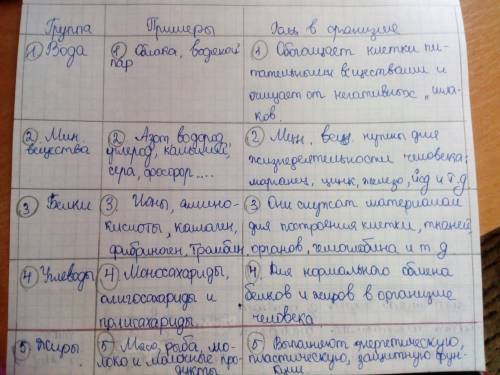 Группа Примеры Роль в организме
① Вода ① Облака, водяной пар ① Обогащает клетки питательными веществами и очищает от негативных „шлаков.
② Мин. вещества ② Азот водород углерод, кальций, сера, фосфор.... ② Мин. вещ. нужны для жизнедеятельности человека; марганец, цинк, железо, йод и т.д.
③ Белки ③. Ионы, амино-кислоты, коллаген, фибриноген, тромбин. ③ Они служат материалом для построения клетки, тканей, органов, гемоглобина и т д
④ Углеводы ④ Моносахариды, олигосахариды и полисахариды. ④. Для нормального обмена белков и жиров в организме человека
⑤ Жиры ⑤ Масло, рыба, молоко и молочные продукты ⑤ Выполняют энергетическую, пластическую, защитную функции.